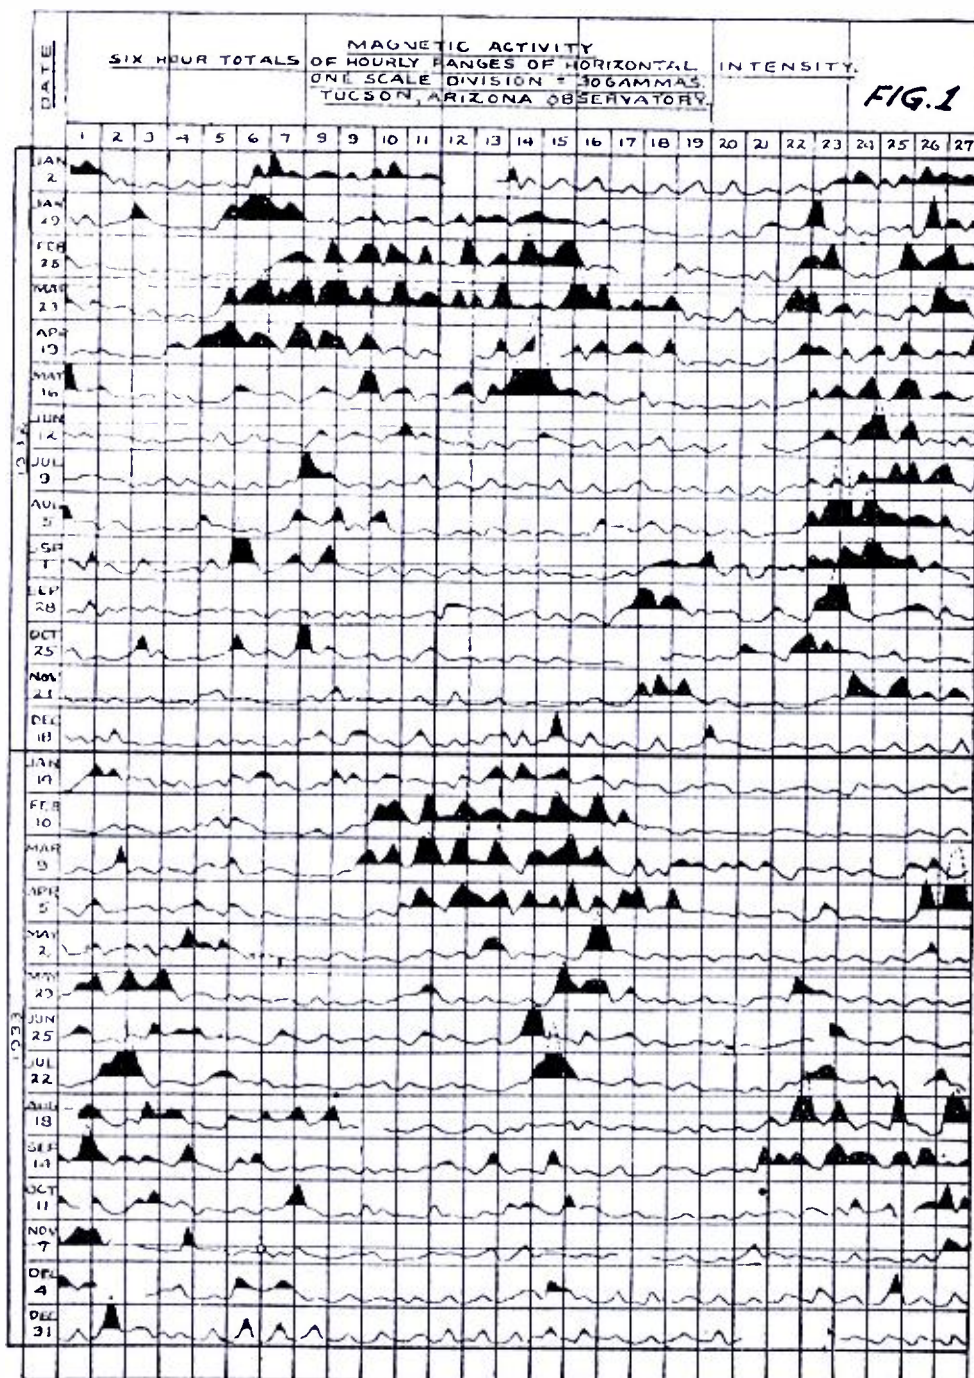 DATE
MAGNETIC ACTIVITY
SIX HOUR TOTALS OF HOURLY RANGES OF HORIZONTAL INTENSITY.
ONE SCALE DIVISION = 30 GAMMAS.
TUCSON, ARIZONA OBSERVATORY.
FIG. 1
1 2 3 4 5 6 7 8 9 10 11 12 13 14 15 16 17 18 19 20 21 22 23 24 25 26 27
JAN
2
JAN
29
FEB
25
MAR
23
APR
19
MAY
16
JUN
12
JUL
9
AUG
5
SEP
1
SEP
28
OCT
25
NOV
21
DEC
18
JAN
14
FEB
10
MAR
9
APR
5
MAY
2
MAY
29
JUN
25
JUL
22
AUG
18
SEP
14
OCT
11
NOV
7
DEC
4
DEC
31
1933